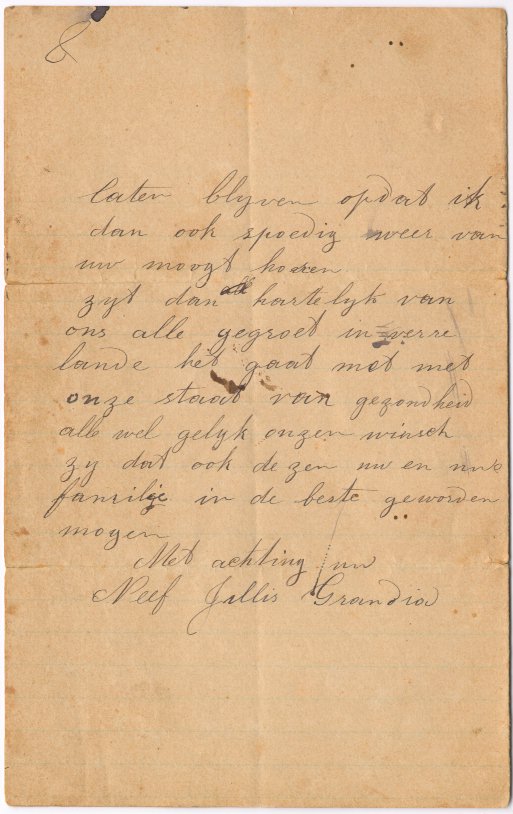 8
laten blyven opdat ik
dan ook spoedig weer van
uw moogt hooren
zyt dan alle hartelyk van
ons alle gegroet in verre
lande het gaat met
onze staat van gezondheid
alle wel gelyk onzen winsch
zy dat ook dezen uw en uwe
familije in de beste geworden
mogen
Met achting uw
Neef Jillis Grandia